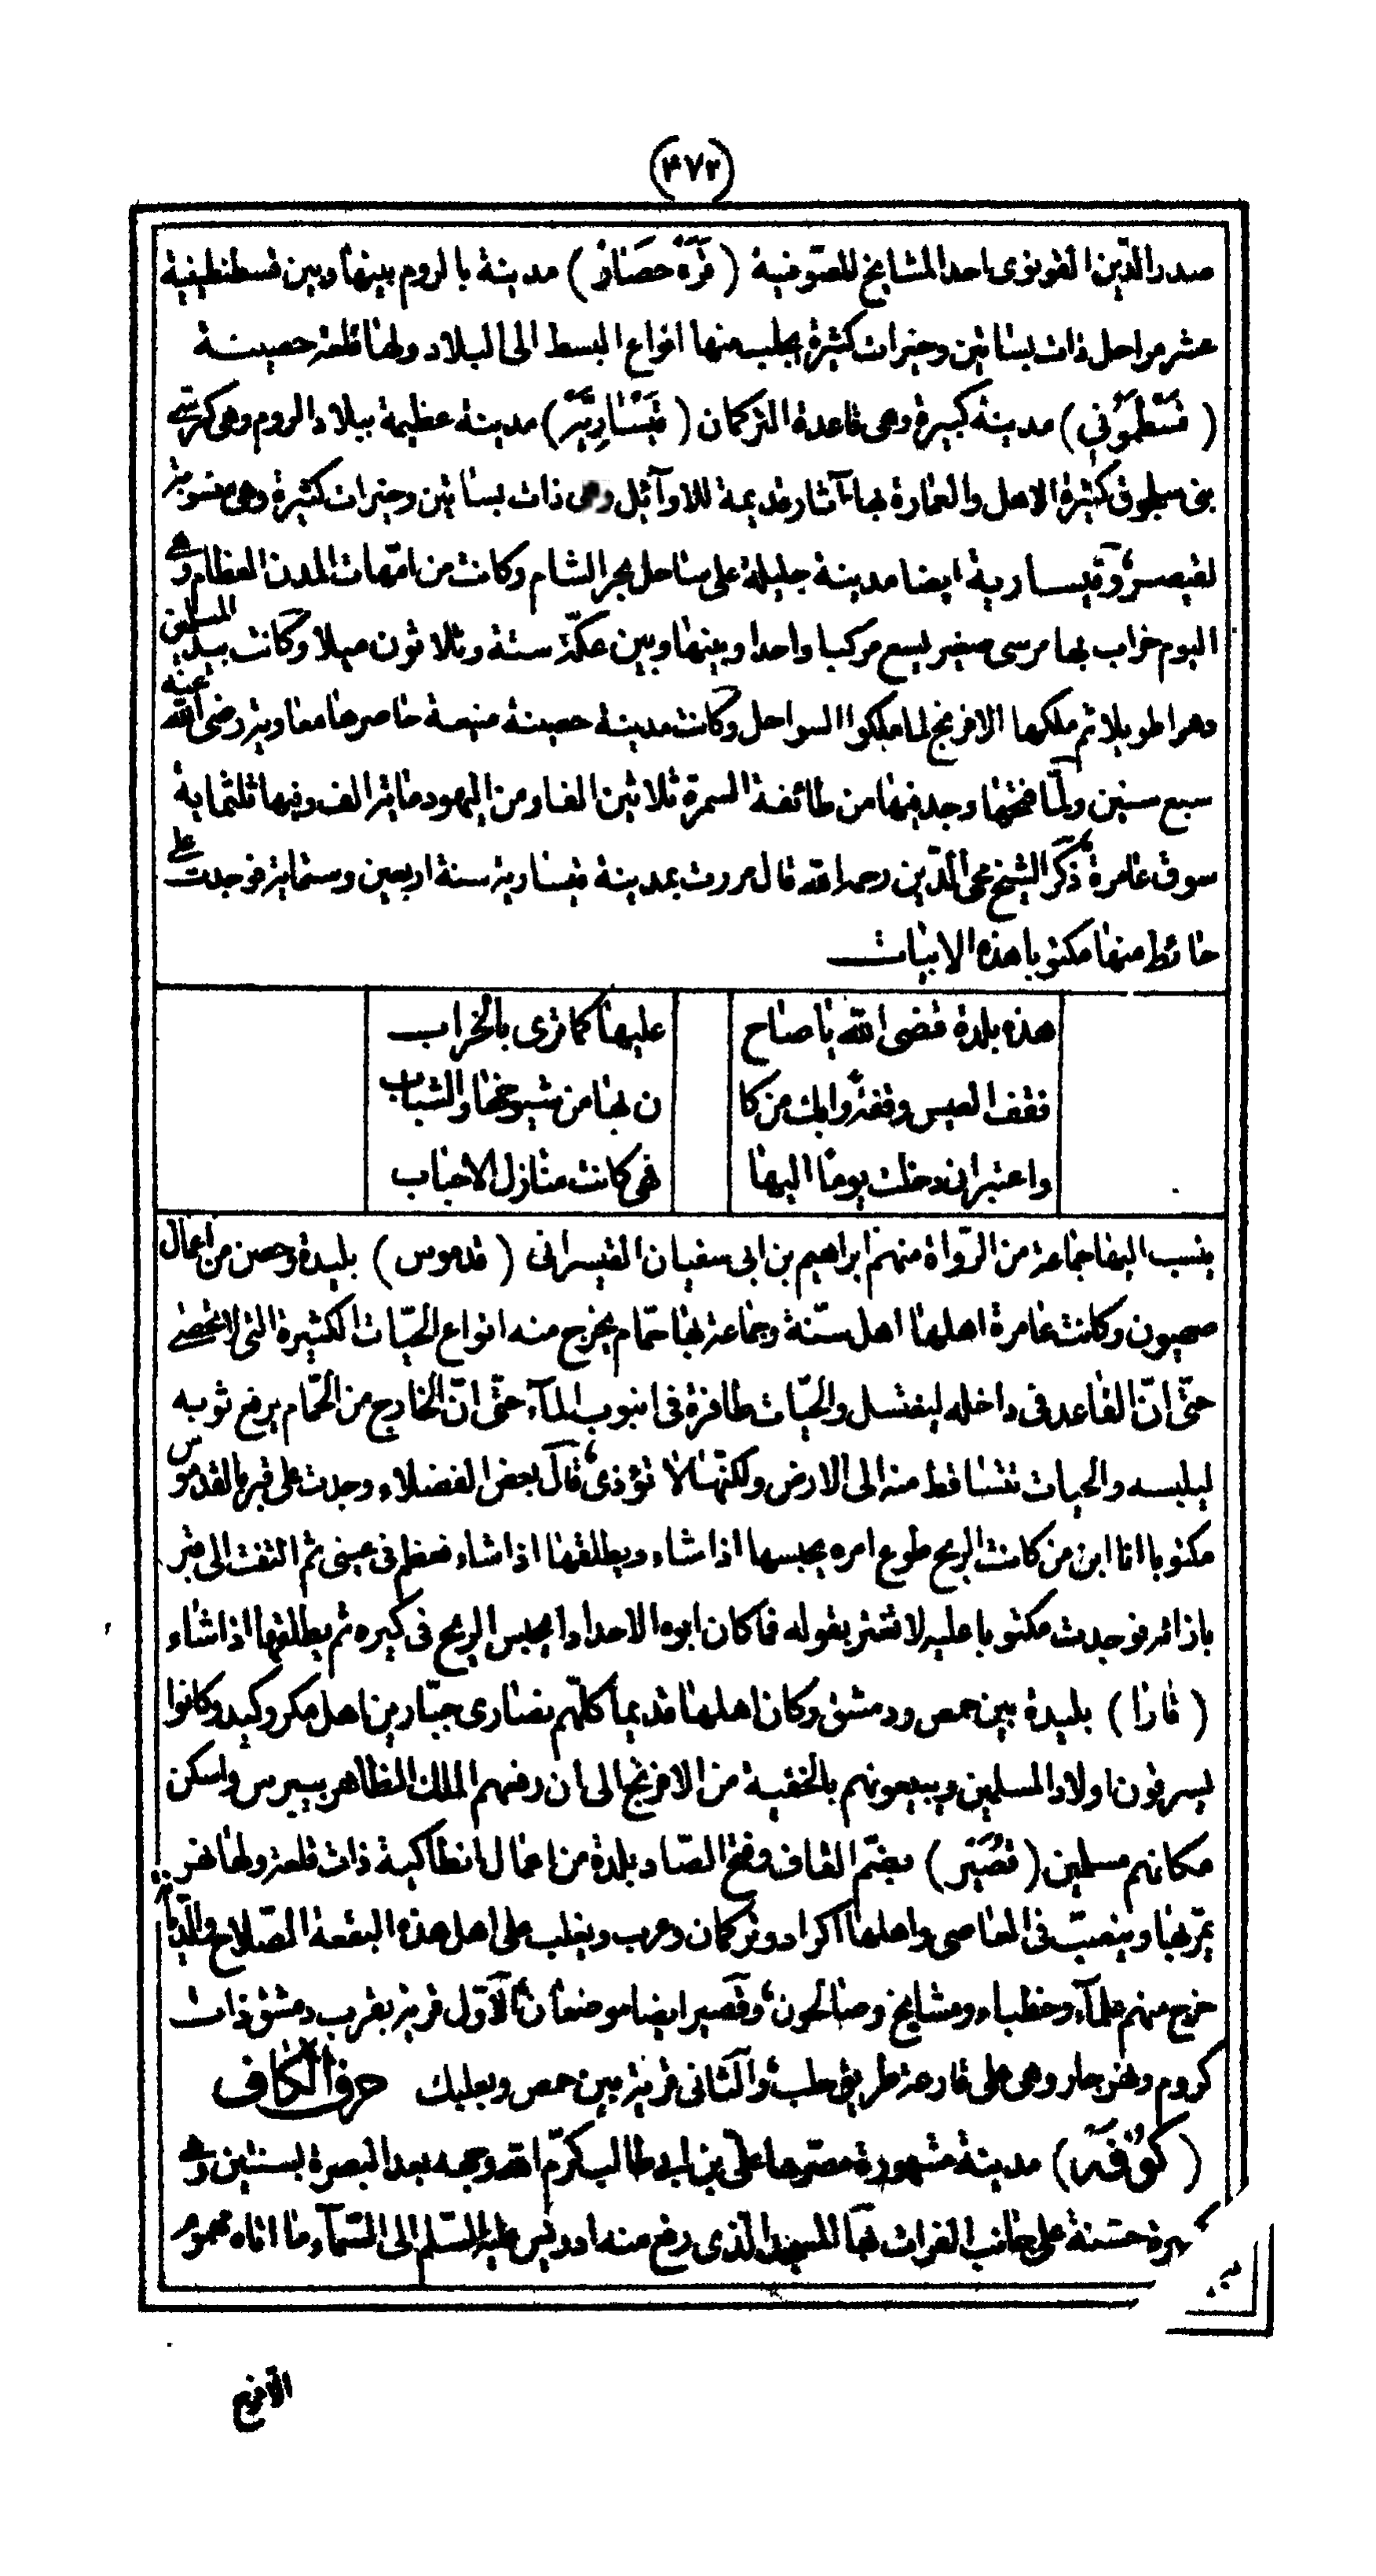 (٤٧٢)
صدر الدّين القونوى احد المشايخ للصّوفية (قَرَه حصَار) مدينة بالروم بينها وبين قسطنطينية
عشر مراحل ذات بساتين وخيرات كثيرة يجلب منها انواع البسط الى البلاد ولها قلعة حصينة
(قَسْطَمُوني) مدينة كبيرة وهى قاعدة التركمان (قَيْسَارِيَّة) مدينة عظيمة ببلاد الروم وهى كرسى
بنى سلجوق كثيرة الاهل والعمارة بها آثار قديمة للاوآئل وهى ذات بساتين وخيرات كثيرة وهى منسوبة
لقيصر وقيسارية ايضا مدينة جليلة على ساحل بحر الشام وكانت من امّهات المدن العظام وهى
اليوم خراب بها مرسى صغير يسع مركبا واحدا وبينها وبين عكّة ستة وثلاثون ميلا وكانت بيد المسلمين
دهرا طويلا ثم ملكها الافرنج لما ملكوا السواحل وكانت مدينة حصينة منيعة حاصرها معاوية رضى الله عنه
سبع سنين ولمّا فتحها وجد فيها من طائفة السمرة ثلاثين الفا ومن اليهود مائة الف وفيها ثلثماية
سوق عامرة ذكر الشيخ محى الدّين رحمه الله قال مررت بمدينة قيسارية سنة اربعين وستماية فوجدت على
حائط منها مكتوبا هذه الابيات
هذه بلدة قضى الله يا صاح عليها كما ترى بالخراب
فقف العيس وقفة وابك من كا ن بها من شيوخها والشباب
واعتبر ان دخلت يوما اليها فهى كانت منازل الاحباب
ينسب اليها جماعة من الرّواة منهم ابراهيم بن ابى سفيان القيسرانى (قدموس) بليدة وحصن من اعمال
صهيون وكانت عامرة اهلها اهل سنّة وجماعة بها حمّام يخرج منه انواع الحيّات الكثيرة التى لا تحصى
حتّى انّ القاعد فى داخله ليغتسل والحيّات طافرة فى انبوب المآء حتّى انّ الخارج من الحمّام يرفع ثوبه
ليلبسه والحيات تتساقط منه الى الارض ولكنّها لا تؤذى قال بعض الفضلاء وجدت على قبر بالقدموس
مكتوبا انا ابن من كانت الريح طوع امره يحبسها اذا شاء ويطلقها اذا شاء فعظم فى عينى ثم التفت الى قبر
بازائه فوجدت مكتوبا عليه لا تغتر بقوله فما كان ابوه الا حدادا يحبس الريح فى كيره ثم يطلقها اذا شاء
(قارا) بليدة بين حمص ودمشق وكان اهلها قديما كلّهم نصارى جبّارين اهل مكر وكيد وكانوا
يسرقون اولاد المسلمين ويبيعونهم بالخفية من الافرنج الى ان دفنهم الملك الظاهر بيبرس واسكن
مكانهم مسلمين (قصَيْر) بضم القاف وفتح الصاد بلدة من اعمال انطاكية ذات قلعة ولها نهر
يمرّ بها وينصبّ فى العاصى واهلها اكراد وتركمان وعرب ويغلب على اهل هذه البقعة الصّلاح والدّيانة
خرج منهم علمآء وخطباء ومشايخ وصالحون وقصير ايضا موضعان الاوّل قرية بقرب دمشق ذات
كروم ونهر جار وهى على قارعة طريق حلب والثانى قرية بين حمص وبعلبك حرف الكاف
(كُوفَة) مدينة مشهورة مصّرها علىّ بن ابى طالب كرّم الله وجهه بعد البصرة بسنتين وهى
حسنة على جانب الفرات بها المسجد الذى رفع منه ادريس عليه السّلم الى السّمآء وما اتاه مهموم